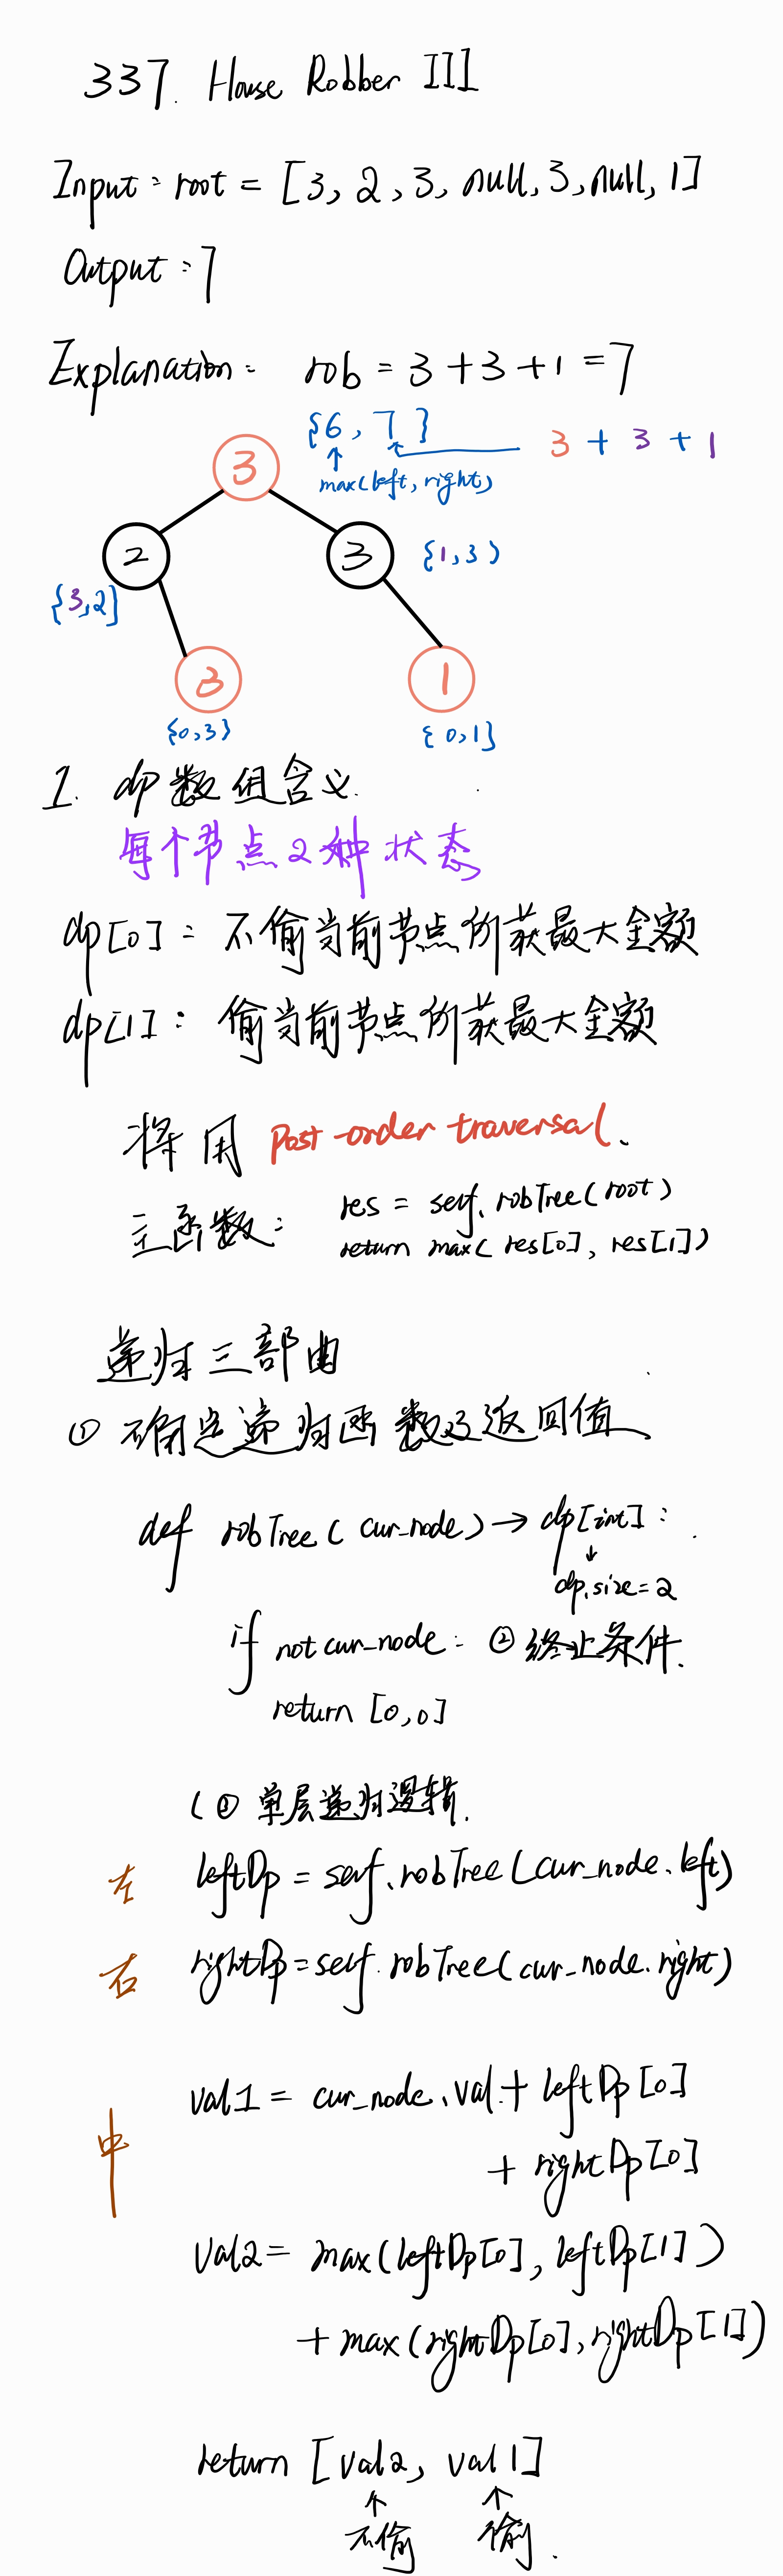 337. House Robber III
Input: root = [3, 2, 3, null, 3, null, 1]
Output: 7
Explanation: rob = 3 + 3 + 1 = 7
{6, 7} 3 + 3 + 1
max(left, right)
3
2 3 {1, 3}
{3, 2}
3 1
{0, 3} {0, 1}
1. dp数组含义.
每个节点2种状态
dp[0]: 不偷当前节点所获最大金额
dp[1]: 偷当前节点所获最大金额
将用 post-order traversal.
主函数: res = self.robTree(root)
return max(res[0], res[1])
递归三部曲
① 确定递归函数及返回值
def robTree(cur_node) → dp[int]:
↓
dp.size=2
if not cur_node: ② 终止条件.
return [0,0]
单层递归逻辑.
左 leftDp = self.robTree(cur_node.left)
右 rightDp = self.robTree(cur_node.right)
中 val1 = cur_node.val + leftDp[0]
+ rightDp[0]
val2 = max(leftDp[0], leftDp[1])
+ max(rightDp[0], rightDp[1])
return [val2, val1]
↑ ↑
不偷 偷.